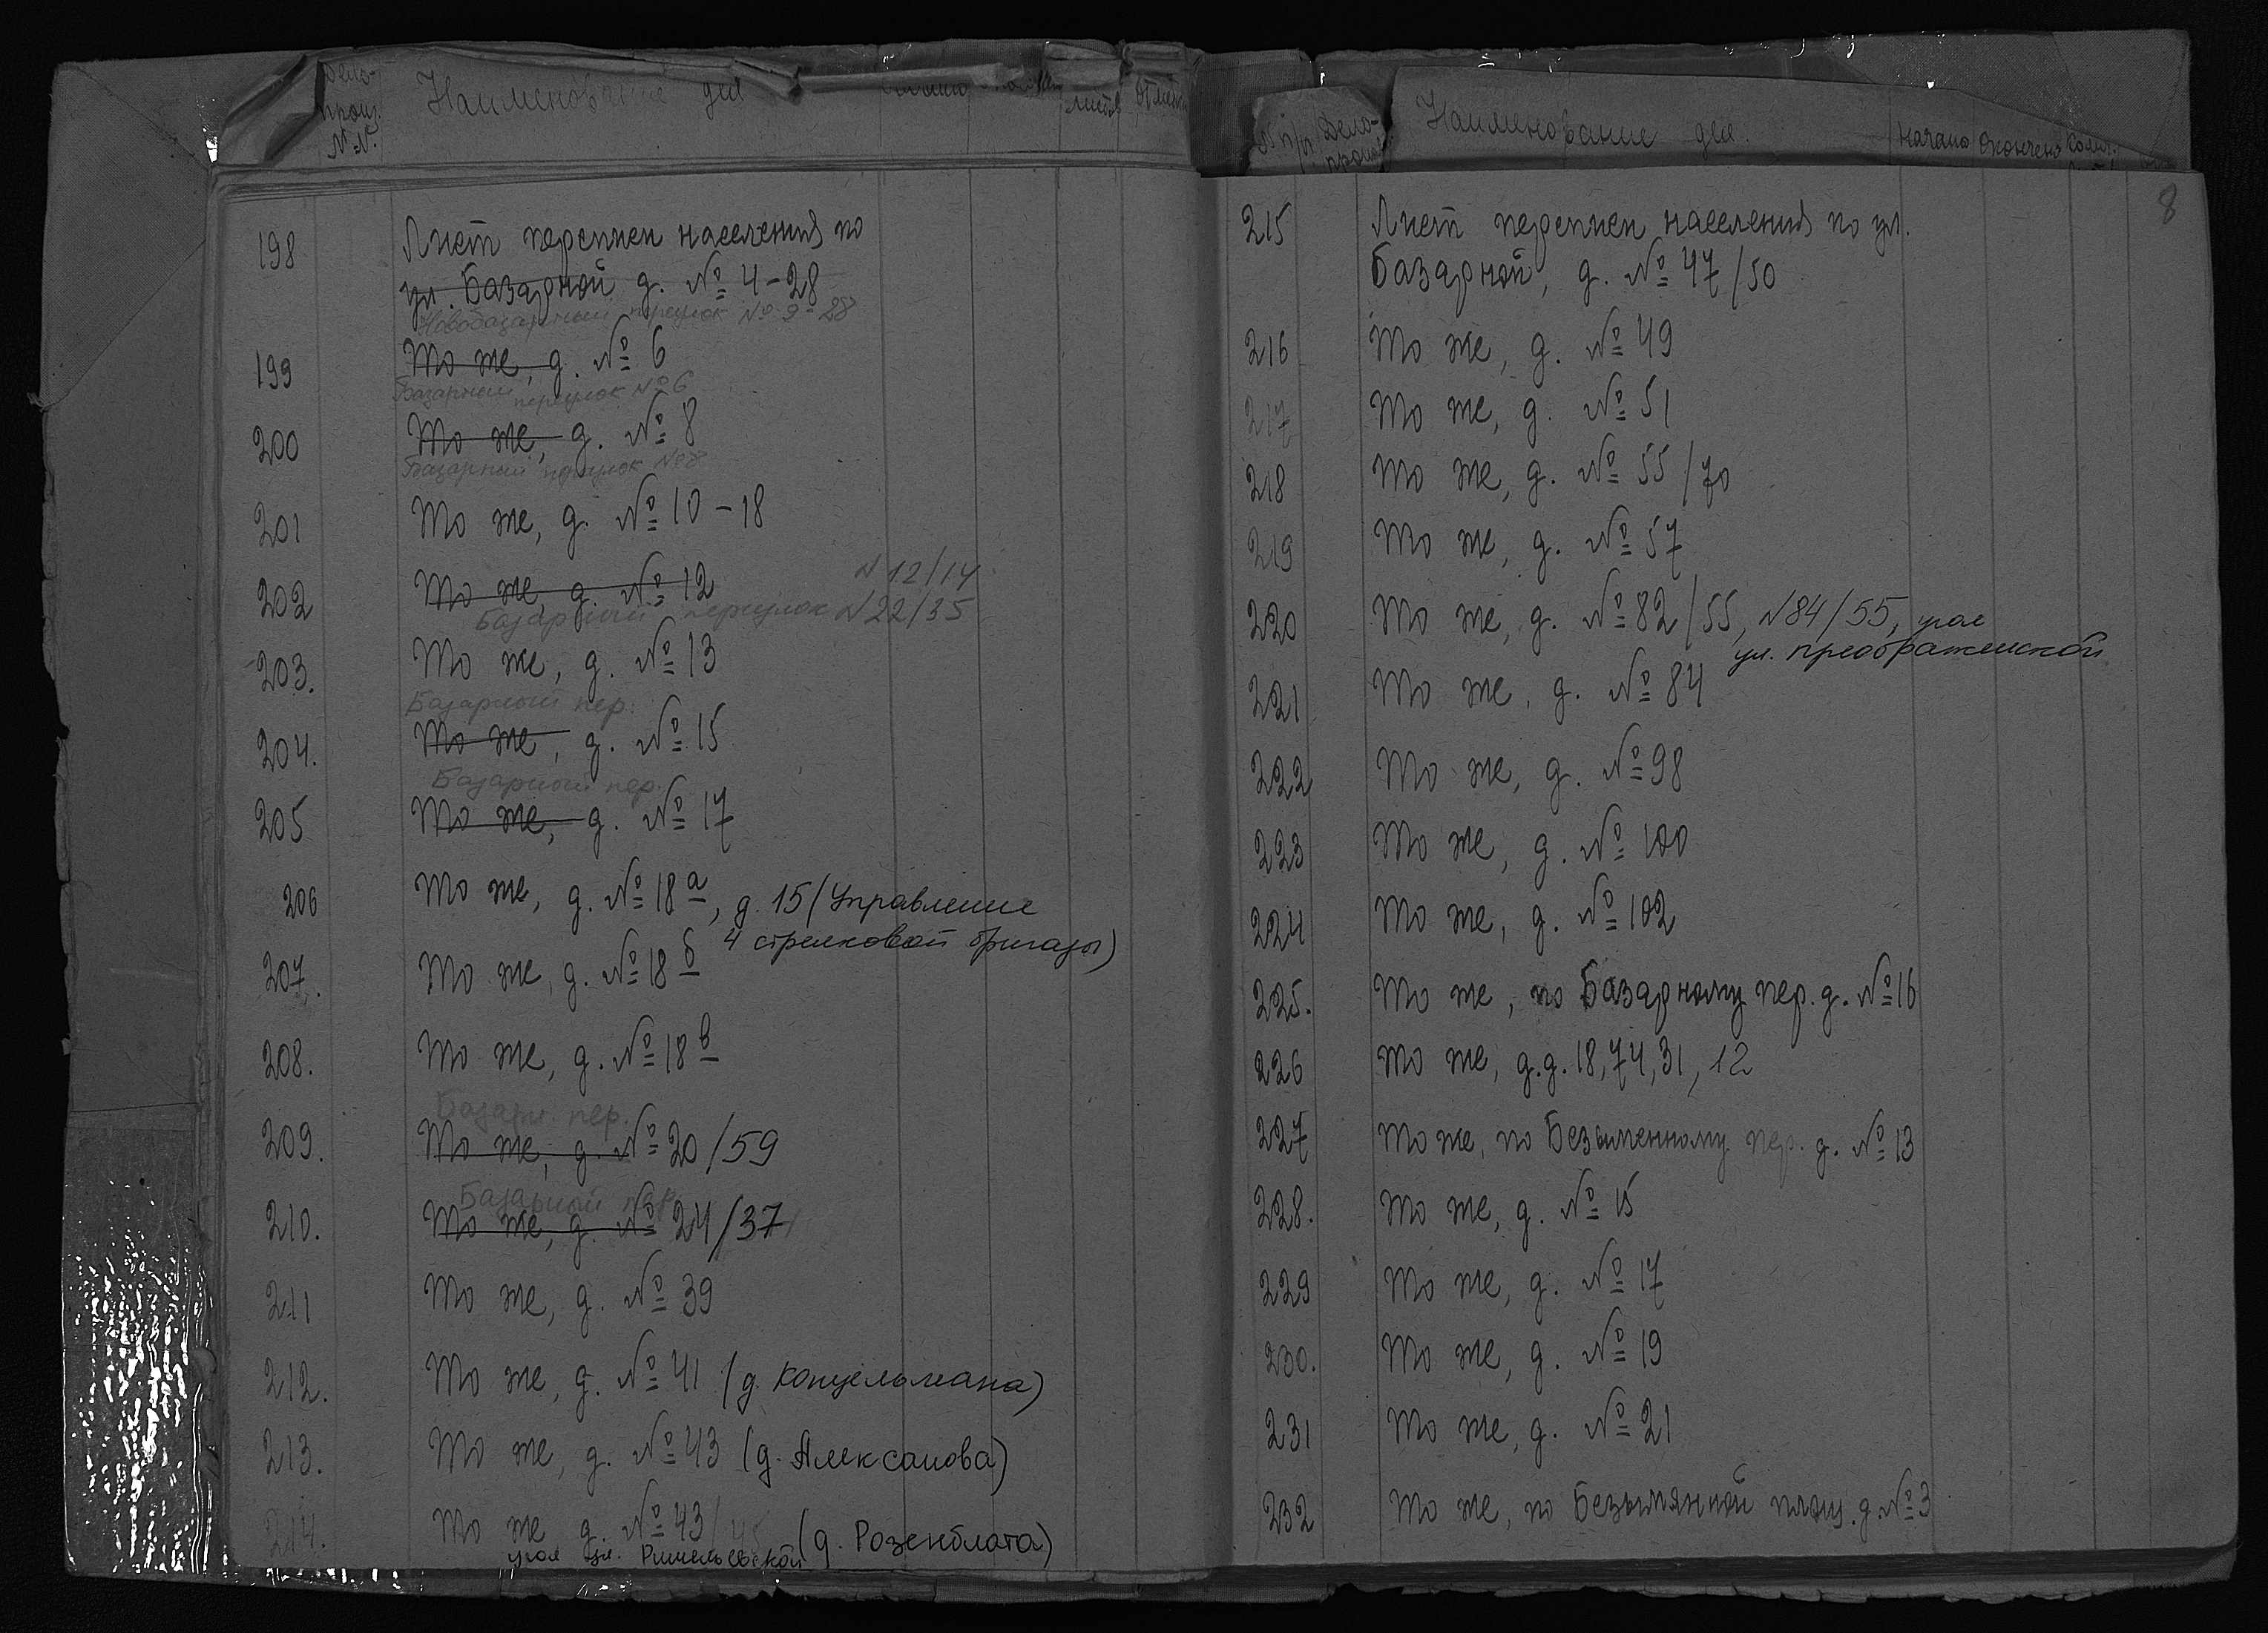 Дело-
произ.
№№
Наименование дел
листов
198 Лист переписи населения по
ул. Базарной д. № 4-28
Новобазарный переулок № 9-28
199 То же, д. № 6
Базарный переулок № 6
200 То же, д. № 8
Базарный переулок № 8
201 То же, д. № 10-18
202 То же, д. № 12 N 12/14
Базарный переулок N 22/35
203. То же, д. № 13
Базарный пер.
204. То же, д. № 15
Базарный пер.
205 То же, д. № 17
206 То же, д. № 18 а, д. 15 (Управление
4 стрелковой бригады)
207. То же, д. № 18 б
208. То же, д. № 18 в
Базарн. пер.
209. То же, д. № 20/59
Базарный пер.
210. То же, д. № 24/37
211 То же, д. № 39
212. То же, д. № 41 (д. Концельмана)
213. То же, д. № 43 (д. Алексанова)
214. То же д. № 43/45 (д. Розенблата)
угол ул. Ришельевской
№ п/п Дело-
произ.
Наименование дел.
Начато Окончено Колич.
8
215 Лист переписи населения по ул.
Базарной, д. № 47/50
216 То же, д. № 49
217 То же, д. № 51
218 То же, д. № 55/70
219 То же, д. № 57
220 То же, д. № 82/55, N84/55, угол
ул. Преображенской
221 То же, д. № 84
222 То же, д. № 98
223 То же, д. № 100
224 То же, д. № 102
225. То же, по Базарному пер. д. № 16
226 То же, д.д. 18, 74, 31, 12
227 То же, по Безыменному пер. д. № 13
228. То же, д. № 15
229 То же, д. № 17
230. То же, д. № 19
231 То же, д. № 21
232 То же, по Безымянной площ. д. № 3